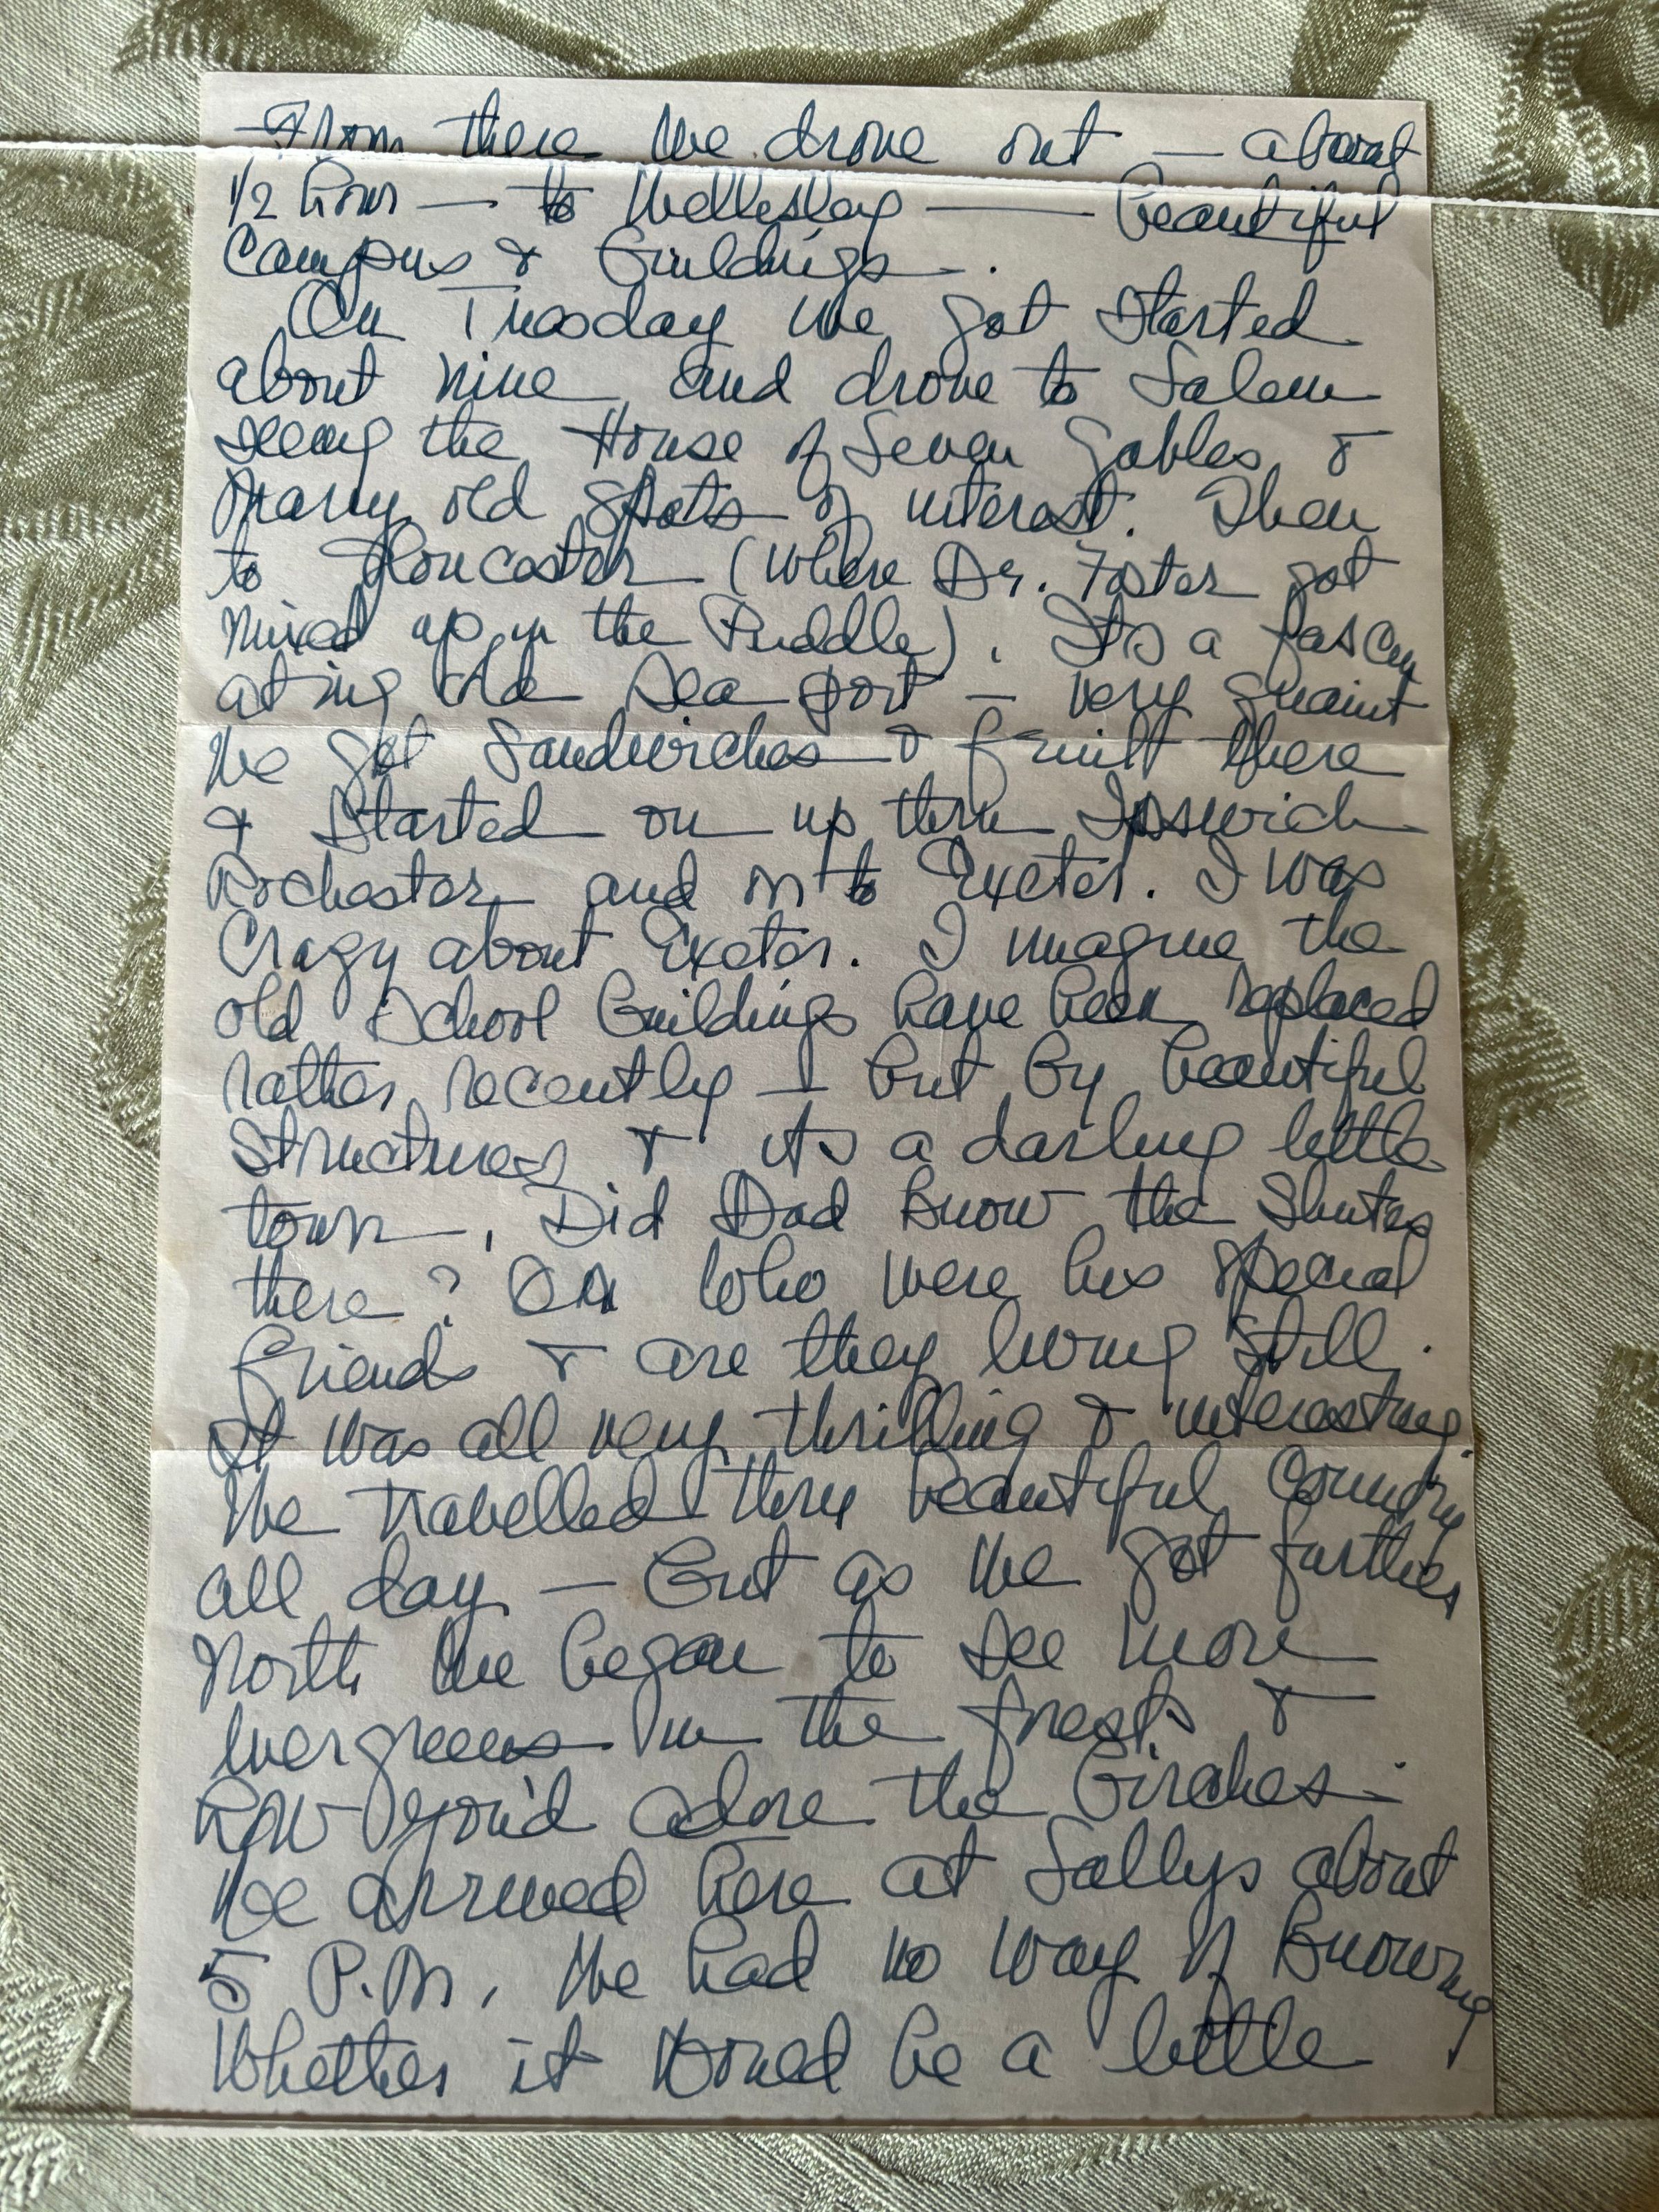 From there we drove out — about
1/2 hour — to Wellesley — beautiful
Campus & Buildings.
On Tuesday we got started
about nine and drove to Salem
seeing the House of Seven Gables &
Many old spots of interest. Then
to Gloucester (where Dr. Foster got
mixed up in the Puddle). Its a fascin
ating old Sea port — very quaint
We got Sandwiches & fruit there
& Started on up thru Ipswich
Rochester and on to Exeter. I was
Crazy about Exeter. I imagine the
old School Buildings have been replaced
rather recently — but by beautiful
Structures & its a darling little
town. Did Dad Know the Shutes
there? Or Who were his special
friends & are they living still.
It was all very thrilling & interesting.
We travelled thru beautiful Country
all day — But as we got further
North we began to see more
Evergreens in the forests &
how you'd adore the Birches.
We arrived here at Sallys about
5 P.M. We had no way of Knowing
Whether it would be a little